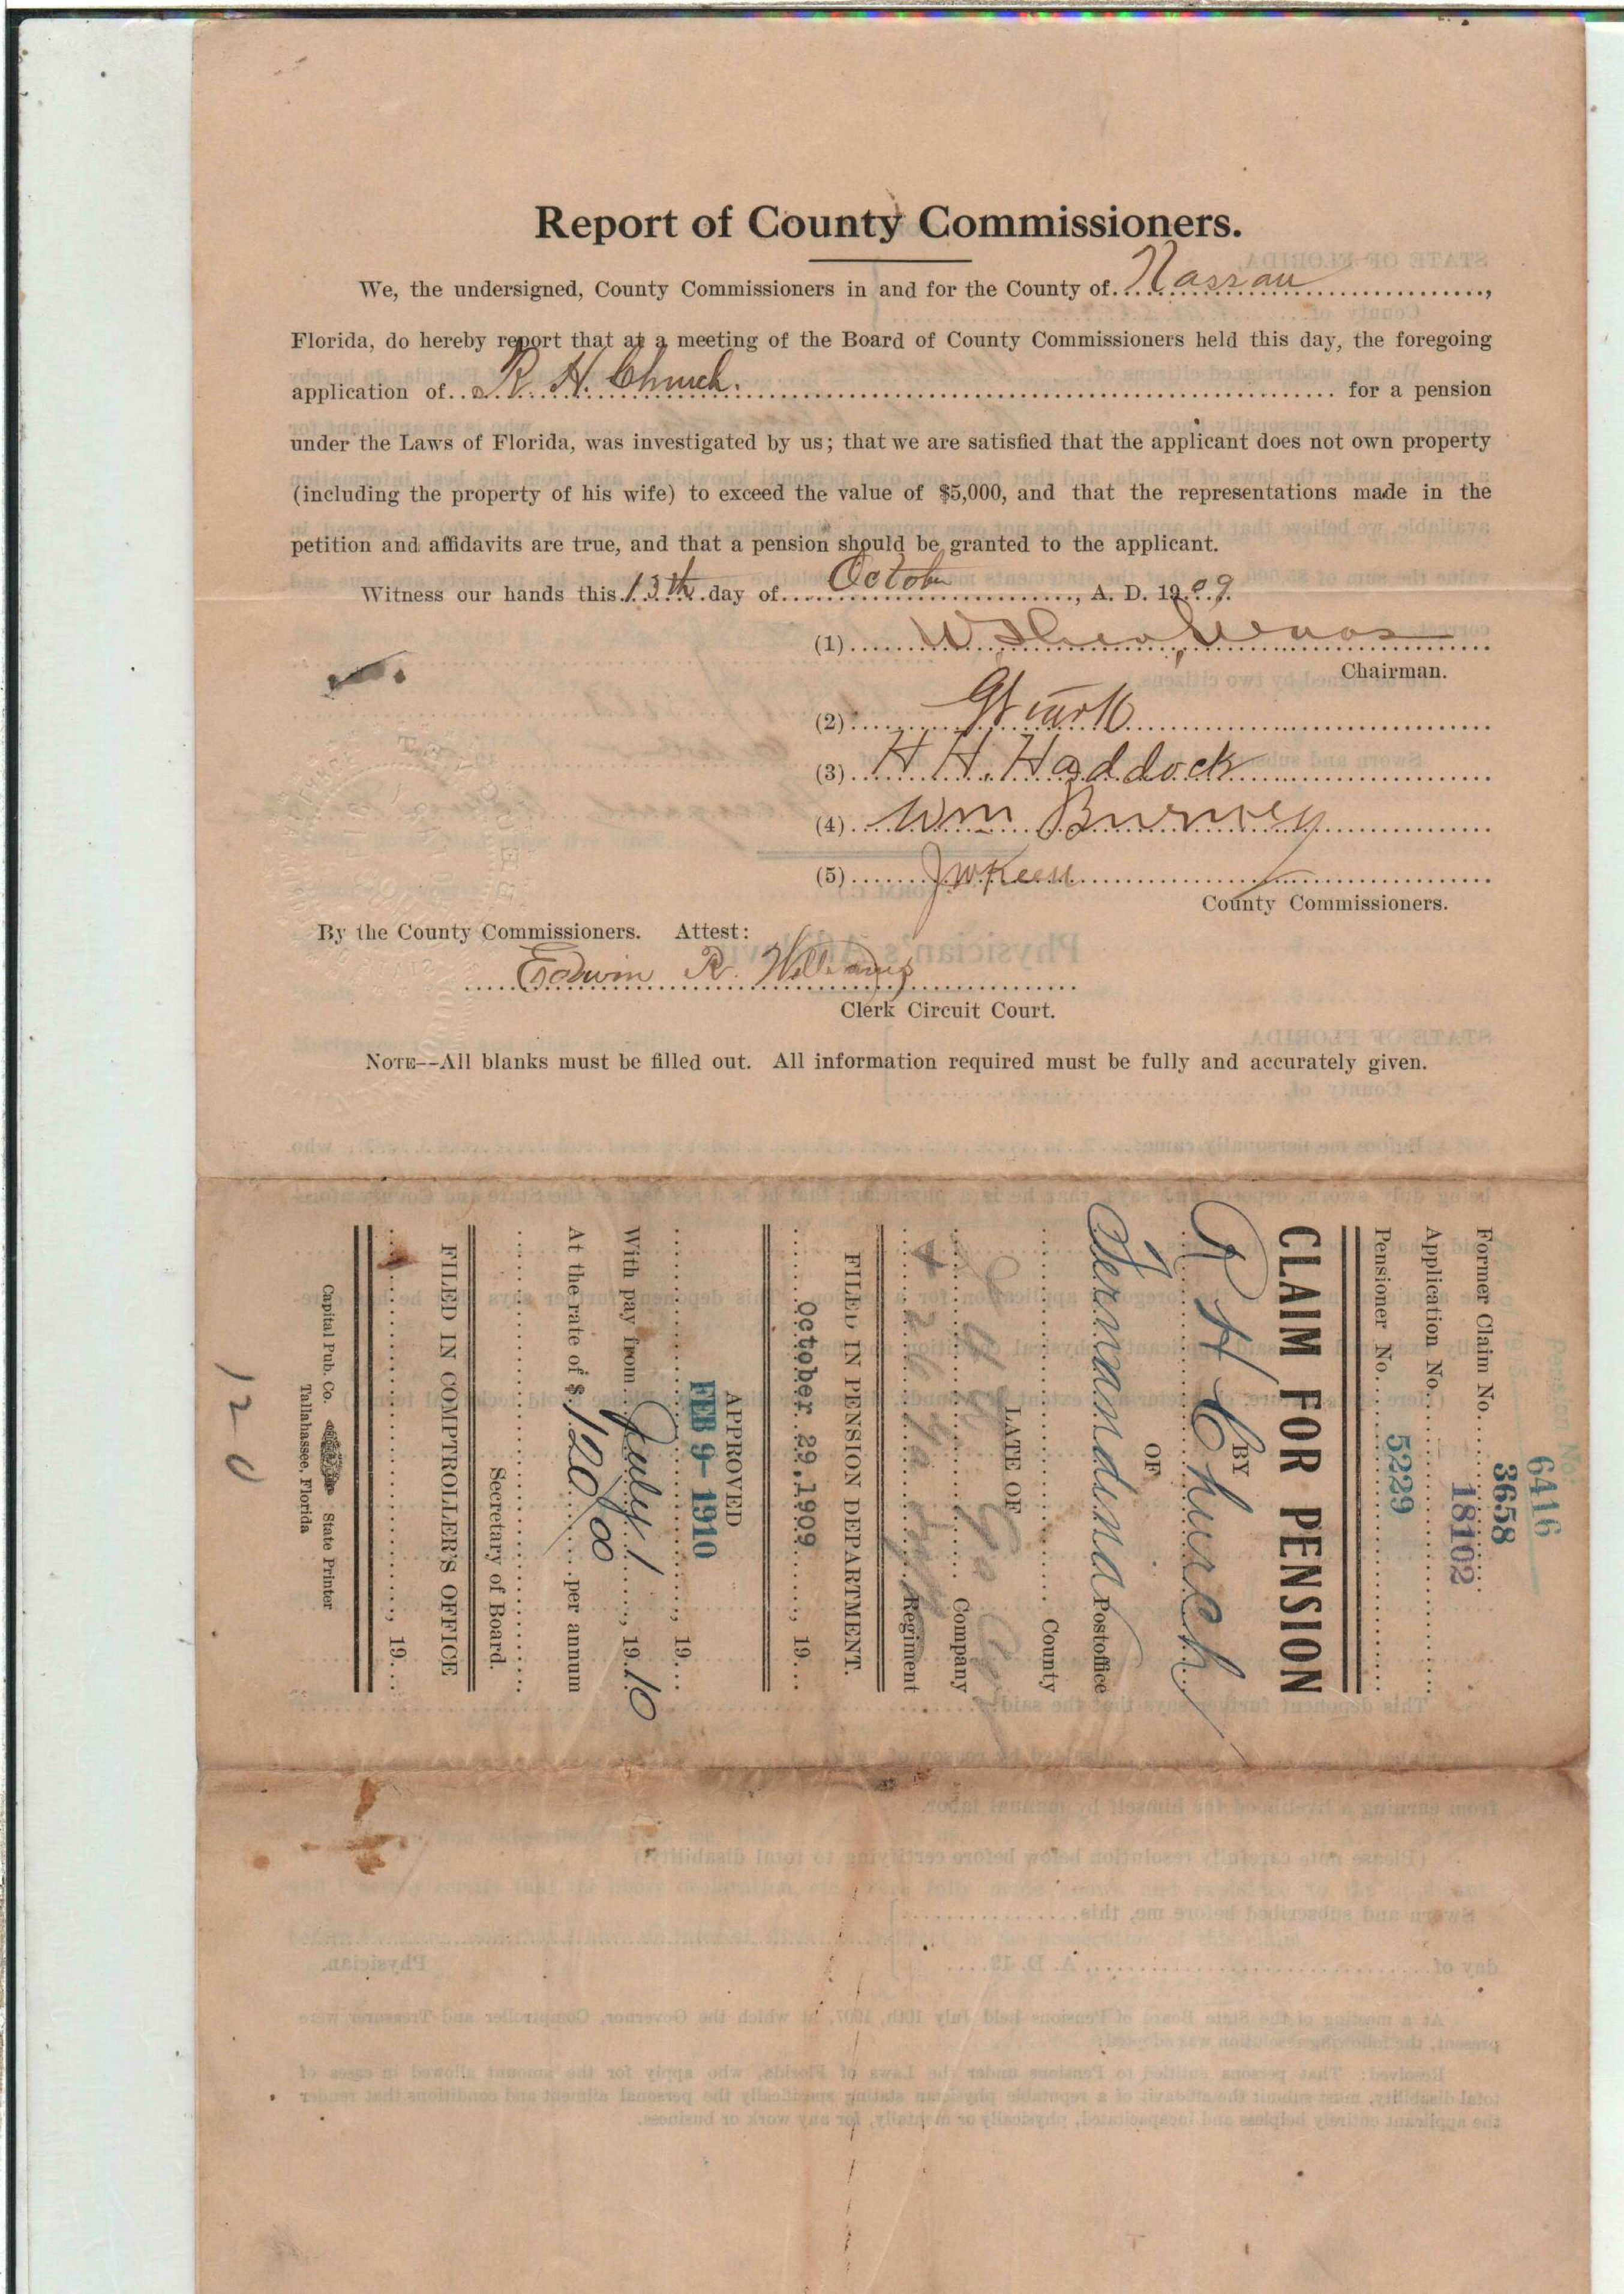 Report of County Commissioners.
We, the undersigned, County Commissioners in and for the County of Nassau,
Florida, do hereby report that at a meeting of the Board of County Commissioners held this day, the foregoing
application of R. H. Church. for a pension
under the Laws of Florida, was investigated by us; that we are satisfied that the applicant does not own property
(including the property of his wife) to exceed the value of $5,000, and that the representations made in the
petition and affidavits are true, and that a pension should be granted to the applicant.
Witness our hands this 13th day of October, A. D. 1909.
(1)
Chairman.
(2)
(3) H. H. Haddock
(4) Wm Burney
(5) J W Keen
County Commissioners.
By the County Commissioners. Attest:
Edwin R. Williams
Clerk Circuit Court.
NOTE--All blanks must be filled out. All information required must be fully and accurately given.
Pension No.
6416
3658
Former Claim No.
Application No. 18102
Pensioner No. 5229
CLAIM FOR PENSION
BY
R H Church
OF
Fernandina Postoffice
County
LATE OF
Company
Regiment
FILED IN PENSION DEPARTMENT.
October 29, 1909, 19
APPROVED
FEB 9-1910, 19
With pay from July 1, 1910
At the rate of $120/00 per annum
Secretary of Board.
FILED IN COMPTROLLER'S OFFICE
, 19
Capital Pub. Co. State Printer
Tallahassee, Florida
120